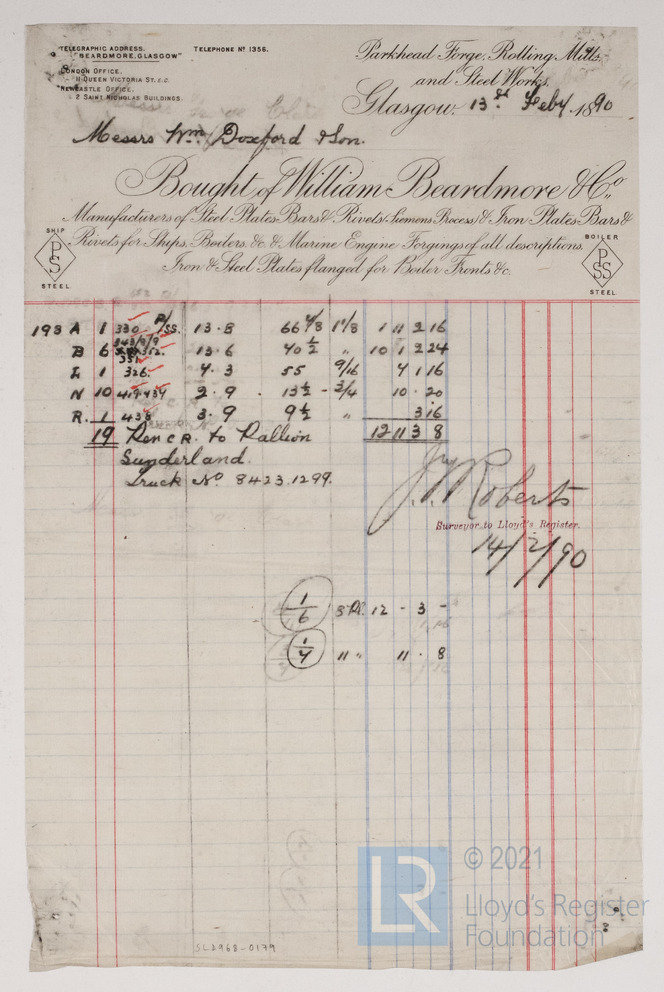 TELEGRAPHIC ADDRESS.
"BEARDMORE, GLASGOW"
TELEPHONE Nº 1356.
LONDON OFFICE.
11 QUEEN VICTORIA ST. E.C.
NEWCASTLE OFFICE.
2 SAINT NICHOLAS BUILDINGS.
Parkhead Forge, Rolling Mills,
and Steel Works,
Glasgow, 13th Feby 1890
Messrs Wm. Doxford & Son.
Bought of William Beardmore & Co.,
Manufacturers of Steel Plates Bars & Rivets (Siemens Process) & Iron Plates Bars &
Rivets for Ships, Boilers, &c & Marine Engine Forgings of all descriptions.
Iron & Steel Plates flanged for Boiler Fronts &c.
SHIP
PS
STEEL.
BOILER
PSS
STEEL.
193 A 1 330 P/SS. 13.8 66 7/8 1 1/8 1 11 2 16
B 6 352. 351 13.6 40 1/2 " 10 1 2 24
L 1 326. 4.3 55 9/16 4 1 16
N 10 419.434 2.9 . 13 1/2 - 3/4 10 . 20
R. 1 438 3.9 9 1/2 " 3 16
19 Per C.R. to Pallion 12 11 3 8
Sunderland.
Truck No 8423.1299.
J. Roberts
Surveyor to Lloyd's Register.
14/2/90
1/6 8 Pl. 12 - 3 -
1/4 11 " 11 . 8
SLD968-0179
LR
© 2021
Lloyd's Register
Foundation